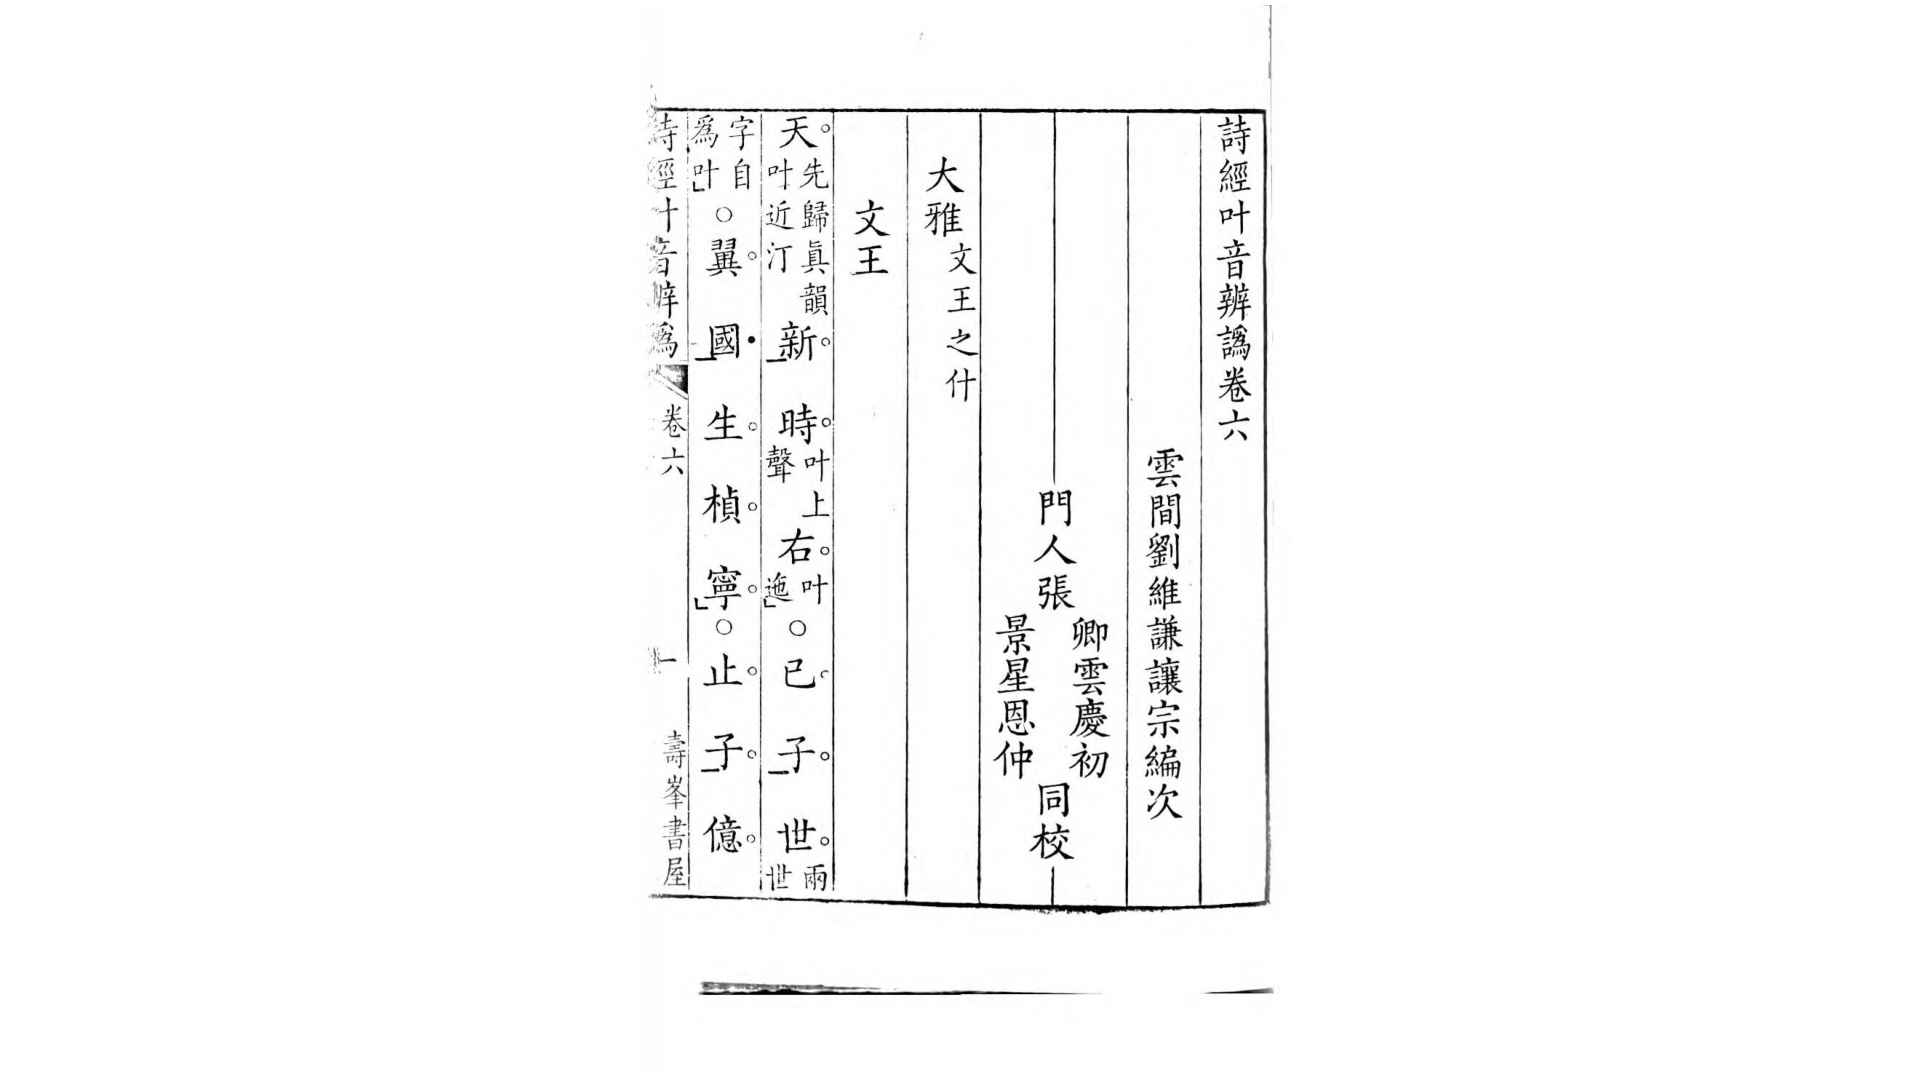 詩經叶音辨譌卷六
雲間劉維謙讓宗編次
門人張
卿雲慶初
景星恩仲
同校
大雅文王之什
文王
天先歸眞韻叶近汀新時叶上聲右叶迤○已子世兩世
字自爲叶○翼國生楨寧○止子億
詩經叶音辨譌 卷六 一 壽峯書屋